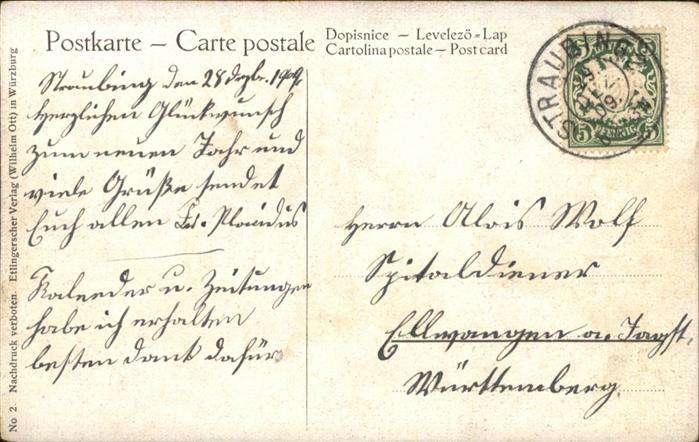 Postkarte – Carte postale
Dopisnice – Levelező-Lap
Cartolina postale – Post card
No 2. Nachdruck verboten. Ettlingerscher Verlag (Wilhelm Ott) in Würzburg
Straubing den 28 Dezbr. 1909.
Herzlichen Glückwunsch
zum neuen Jahr und
viele Grüße sendet
Euch allen Fr. Plazidus
Kalender u. Zeitungen
habe ich erhalten
besten Dank dafür
STRAUBING
5 5
PFENNIG
Herrn Alois Wolf
Spitaldiener
Ellwangen a. Jagst,
Württemberg.